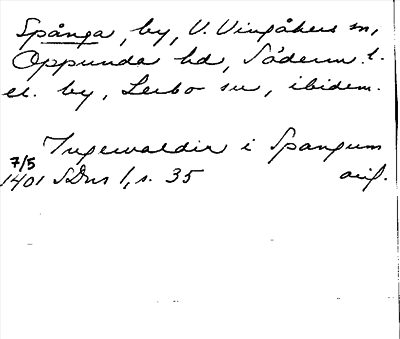 Spånga, by, V. Vingåkers sn,
Oppunda hd, Söderm. l.
el. by, Lerbo sn, ibidem.
Ingewaldir i Spangum
7/5
1401 SDns 1, s. 35 avs.